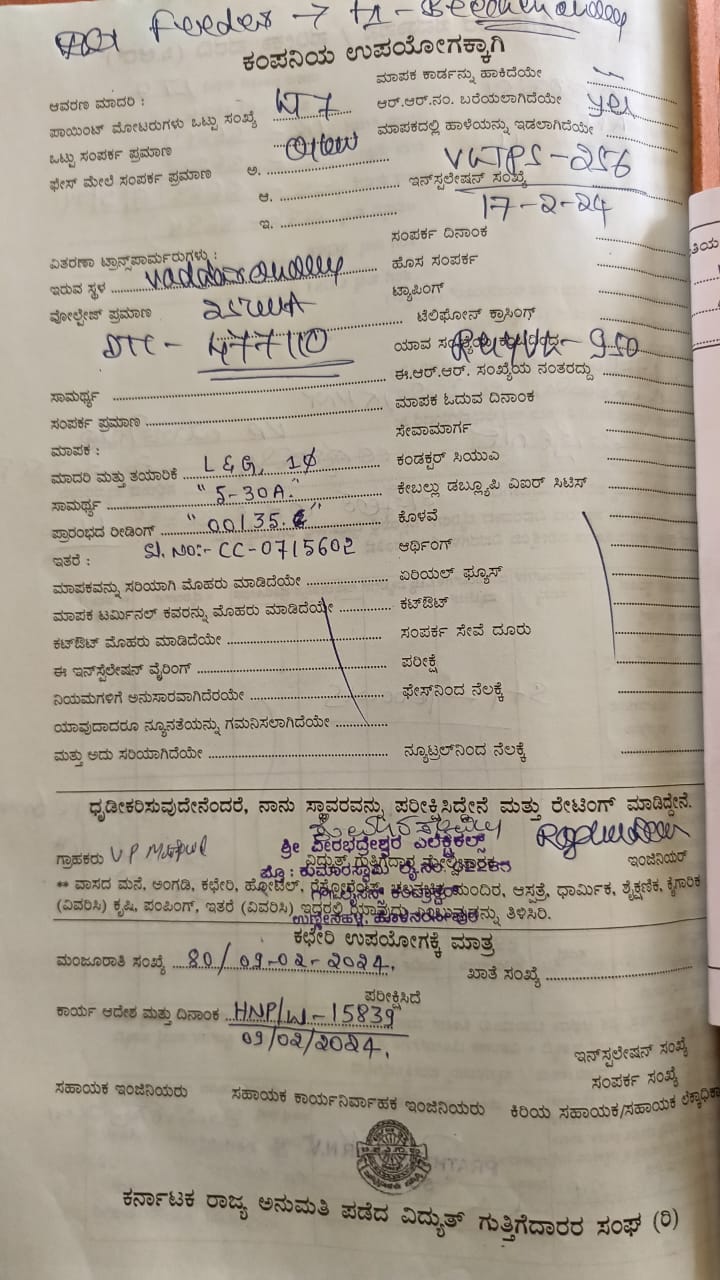 Feeder → f1 -
ಕಂಪನಿಯ ಉಪಯೋಗಕ್ಕಾಗಿ
ಮಾಪಕ ಕಾರ್ಡನ್ನು ಹಾಕಿದೆಯೇ
ಆವರಣ ಮಾದರಿ :
ಆರ್.ಆರ್.ನಂ. ಬರೆಯಲಾಗಿದೆಯೇ yes
ಪಾಯಿಂಟ್ ಮೋಟರುಗಳು ಒಟ್ಟು ಸಂಖ್ಯೆ
ಮಾಪಕದಲ್ಲಿ ಹಾಳೆಯನ್ನು ಇಡಲಾಗಿದೆಯೇ
ಒಟ್ಟು ಸಂಪರ್ಕ ಪ್ರಮಾಣ
ಫೇಸ್ ಮೇಲೆ ಸಂಪರ್ಕ ಪ್ರಮಾಣ ಅ.
ಇನ್‌ಸ್ಪಲೇಷನ್ ಸಂಖ್ಯೆ
ಆ.
17-2-24
ಇ.
ಸಂಪರ್ಕ ದಿನಾಂಕ
ವಿತರಣಾ ಟ್ರಾನ್ಸ್‌ಪಾರ್ಮರುಗಳು :
ಹೊಸ ಸಂಪರ್ಕ
ಇರುವ ಸ್ಥಳ
ಟ್ಯಾಪಿಂಗ್
ವೋಲ್ಟೇಜ್ ಪ್ರಮಾಣ
ಟೆಲಿಫೋನ್ ಕ್ರಾಸಿಂಗ್
DTC - 477110
ಯಾವ
ಈ.ಆರ್.ಆರ್. ಸಂಖ್ಯೆಯ ನಂತರದ್ದು
ಸಾಮರ್ಥ್ಯ
ಮಾಪಕ ಓದುವ ದಿನಾಂಕ
ಸಂಪರ್ಕ ಪ್ರಮಾಣ
ಸೇವಾಮಾರ್ಗ
ಮಾಪಕ :
ಕಂಡಕ್ಟರ್ ಸಿಯುವಿ
ಮಾದರಿ ಮತ್ತು ತಯಾರಿಕೆ L & G, 1Φ
ಕೇಬಲ್ಲು ಡಬ್ಲ್ಯೂಪಿ ವಿಐರ್ ಸಿಟಿಸ್
ಸಾಮರ್ಥ್ಯ "5-30A."
ಕೊಳವೆ
ಪ್ರಾರಂಭದ ರೀಡಿಂಗ್
ಆರ್ಥಿಂಗ್
ಇತರೆ : Sl. No:- CC-0715602
ಏರಿಯಲ್ ಫ್ಯೂಸ್
ಮಾಪಕವನ್ನು ಸರಿಯಾಗಿ ಮೊಹರು ಮಾಡಿದೆಯೇ
ಕಟ್‌ಔಟ್
ಮಾಪಕ ಟರ್ಮಿನಲ್ ಕವರನ್ನು ಮೊಹರು ಮಾಡಿದೆಯೇ
ಸಂಪರ್ಕ ಸೇವೆ ದೂರು
ಕಟ್‌ಔಟ್ ಮೊಹರು ಮಾಡಿದೆಯೇ
ಪರೀಕ್ಷೆ
ಈ ಇನ್‌ಸ್ಪೆಲೇಷನ್ ವೈರಿಂಗ್
ಫೇಸ್‌ನಿಂದ ನೆಲಕ್ಕೆ
ನಿಯಮಗಳಿಗೆ ಅನುಸಾರವಾಗಿದೆರಯೇ
ಯಾವುದಾದರೂ ನ್ಯೂನತೆಯನ್ನು ಗಮನಿಸಲಾಗಿದೆಯೇ
ಮತ್ತು ಅದು ಸರಿಯಾಗಿದೆಯೇ
ನ್ಯೂಟ್ರಲ್‌ನಿಂದ ನೆಲಕ್ಕೆ
ಧೃಡೀಕರಿಸುವುದೇನೆಂದರೆ, ನಾನು ಸ್ಥಾವರವನ್ನು ಪರೀಕ್ಷಿಸಿದ್ದೇನೆ ಮತ್ತು ರೇಟಿಂಗ್ ಮಾಡಿದ್ದೇನೆ.
ಶ್ರೀ ವೀರಭದ್ರೇಶ್ವರ ಎಲೆಕ್ಟ್ರಿಕಲ್ಸ್
ಗ್ರಾಹಕರು
ಇಂಜಿನಿಯರ್
** ವಾಸದ ಮನೆ, ಅಂಗಡಿ, ಕಛೇರಿ, ಹೋಟೆಲ್, ಮಂದಿರ, ಆಸ್ಪತ್ರೆ, ಧಾರ್ಮಿಕ, ಶೈಕ್ಷಣಿಕ, ಕೈಗಾರಿಕ
(ವಿವರಿಸಿ) ಕೃಷಿ, ಪಂಪಿಂಗ್, ಇತರೆ (ವಿವರಿಸಿ) ಇದರಲ್ಲಿ ತಿಳಿಸಿರಿ.
ಕಛೇರಿ ಉಪಯೋಗಕ್ಕೆ ಮಾತ್ರ
ಮಂಜೂರಾತಿ ಸಂಖ್ಯೆ 80/09-02-2024.
ಖಾತೆ ಸಂಖ್ಯೆ
ಪರೀಕ್ಷಿಸಿದೆ
ಕಾರ್ಯ ಆದೇಶ ಮತ್ತು ದಿನಾಂಕ HNP/W-15839
09/02/2024.
ಇನ್‌ಸ್ಪಲೇಷನ್ ಸಂಖ್ಯೆ
ಸಂಪರ್ಕ ಸಂಖ್ಯೆ
ಸಹಾಯಕ ಇಂಜಿನಿಯರು ಸಹಾಯಕ ಕಾರ್ಯನಿರ್ವಾಹಕ ಇಂಜಿನಿಯರು ಕಿರಿಯ ಸಹಾಯಕ/ಸಹಾಯಕ
ಕರ್ನಾಟಕ ರಾಜ್ಯ ಅನುಮತಿ ಪಡೆದ ವಿದ್ಯುತ್ ಗುತ್ತಿಗೆದಾರರ ಸಂಘ (ರಿ)